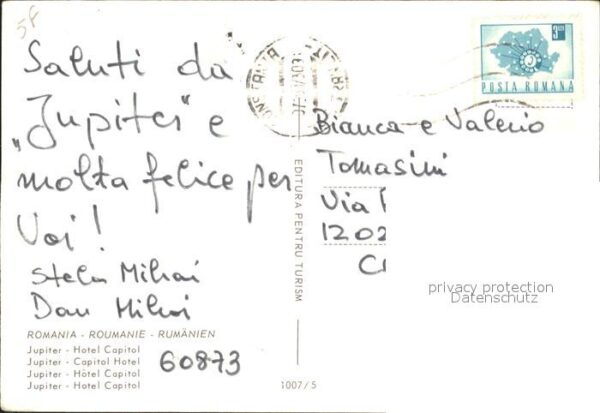 5f
Saluti da
„Jupiter” e
molta felice per
Voi!
Stela Mihai
Dan Mihai
ROMANIA - ROUMANIE - RUMÄNIEN
Jupiter - Hotel Capitol
Jupiter - Capitol Hotel
Jupiter - Hôtel Capitol
Jupiter - Hotel Capitol
60873
EDITURA PENTRU TURISM
1007/5
3 LEI
POSTA ROMANA
Bianca e Valerio
Tomasini
Via
1202
C
privacy protection
Datenschutz